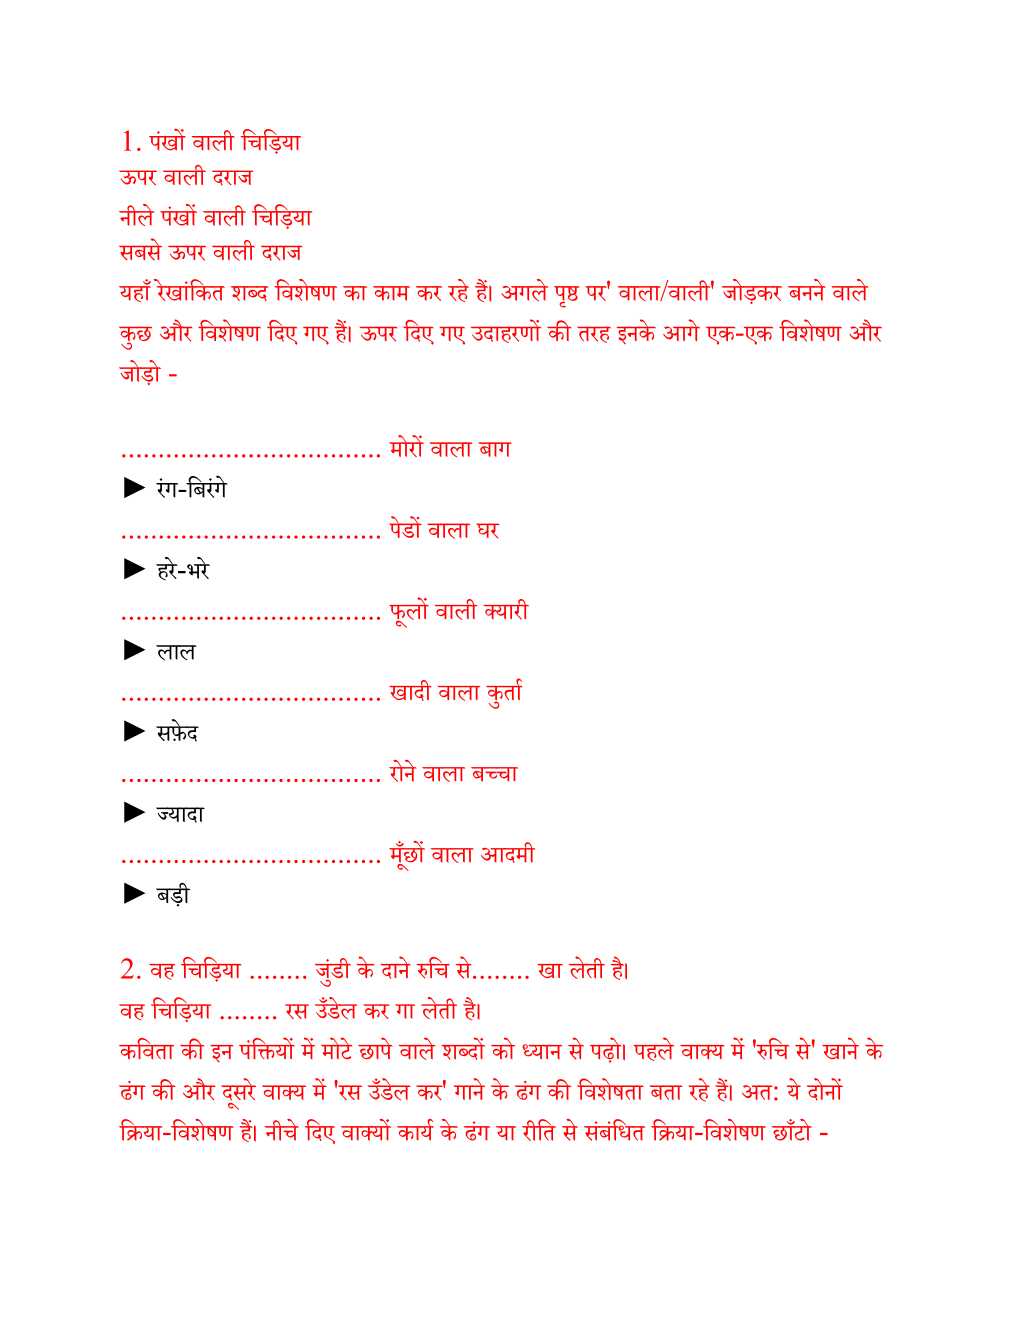 1. पंखों वाली चिड़िया
ऊपर वाली दराज
नीले पंखों वाली चिड़िया
सबसे ऊपर वाली दराज
यहाँ रेखांकित शब्द विशेषण का काम कर रहे हैं। अगले पृष्ठ पर' वाला/वाली' जोड़कर बनने वाले
कुछ और विशेषण दिए गए हैं। ऊपर दिए गए उदाहरणों की तरह इनके आगे एक-एक विशेषण और
जोड़ो -
................................... मोरों वाला बाग
► रंग-बिरंगे
................................... पेडों वाला घर
► हरे-भरे
................................... फूलों वाली क्यारी
► लाल
................................... खादी वाला कुर्ता
► सफ़ेद
................................... रोने वाला बच्चा
► ज्यादा
................................... मूँछों वाला आदमी
► बड़ी
2. वह चिड़िया ........ जुंडी के दाने रुचि से........ खा लेती है।
वह चिड़िया ........ रस उँडेल कर गा लेती है।
कविता की इन पंक्तियों में मोटे छापे वाले शब्दों को ध्यान से पढ़ो। पहले वाक्य में 'रुचि से' खाने के
ढंग की और दूसरे वाक्य में 'रस उँडेल कर' गाने के ढंग की विशेषता बता रहे हैं। अत: ये दोनों
क्रिया-विशेषण हैं। नीचे दिए वाक्यों कार्य के ढंग या रीति से संबंधित क्रिया-विशेषण छाँटो -